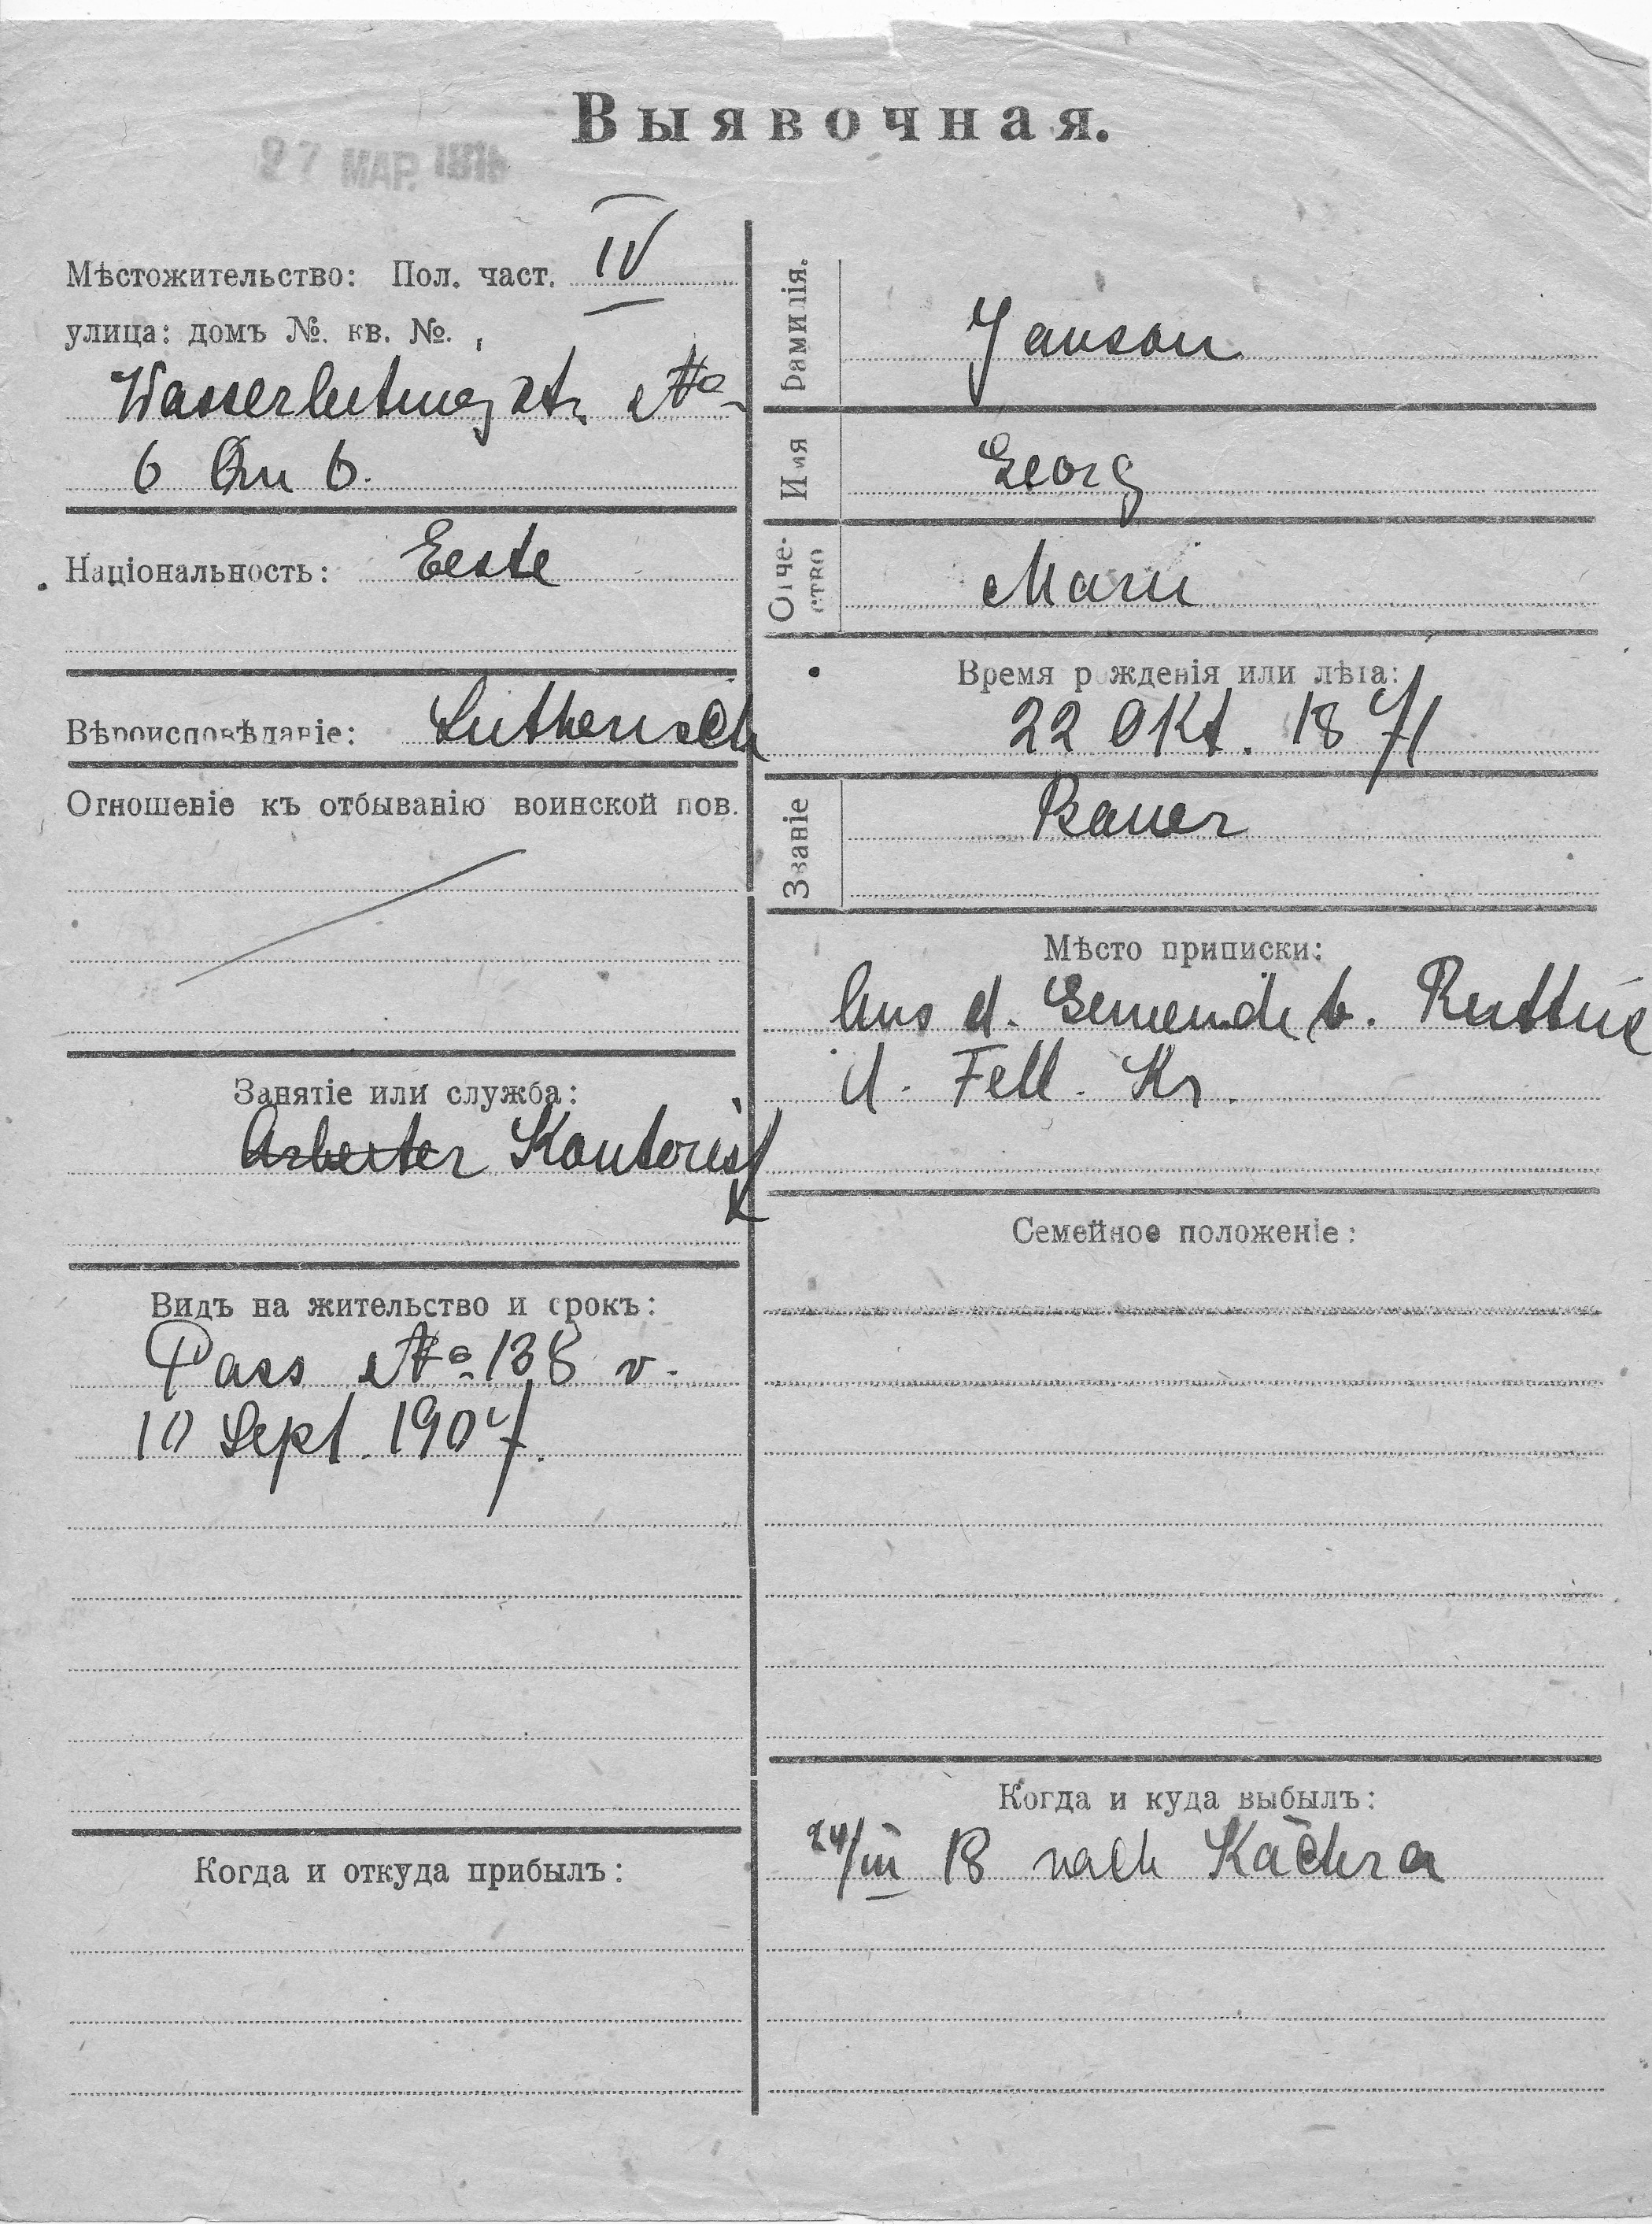 Выявочная.
27 МАР. 1918
Мѣстожительство: Пол. част. IV
улица: домъ №. кв. №.
Wasserleitung Str. №
6 Qu 6.
Національность: Eeste
Вѣроисповѣданіе: Lutherisch
Отношеніе къ отбыванію воинской пов.
Занятіе или служба:
Arbeiter Kontorist
Видъ на жительство и срокъ:
Pass № 138 v.
10 Sept. 1907.
Когда и откуда прибылъ:
Фамилія. Janson
Имя Georg
Отче-
ство Marri
Время рожденія или лѣта:
22 Okt. 1871
Званіе Bauer
Мѣсто приписки:
Aus d. Gemeinde
d. Fell. Kr.
Семейное положеніе:
Когда и куда выбылъ:
24/III 18 nach